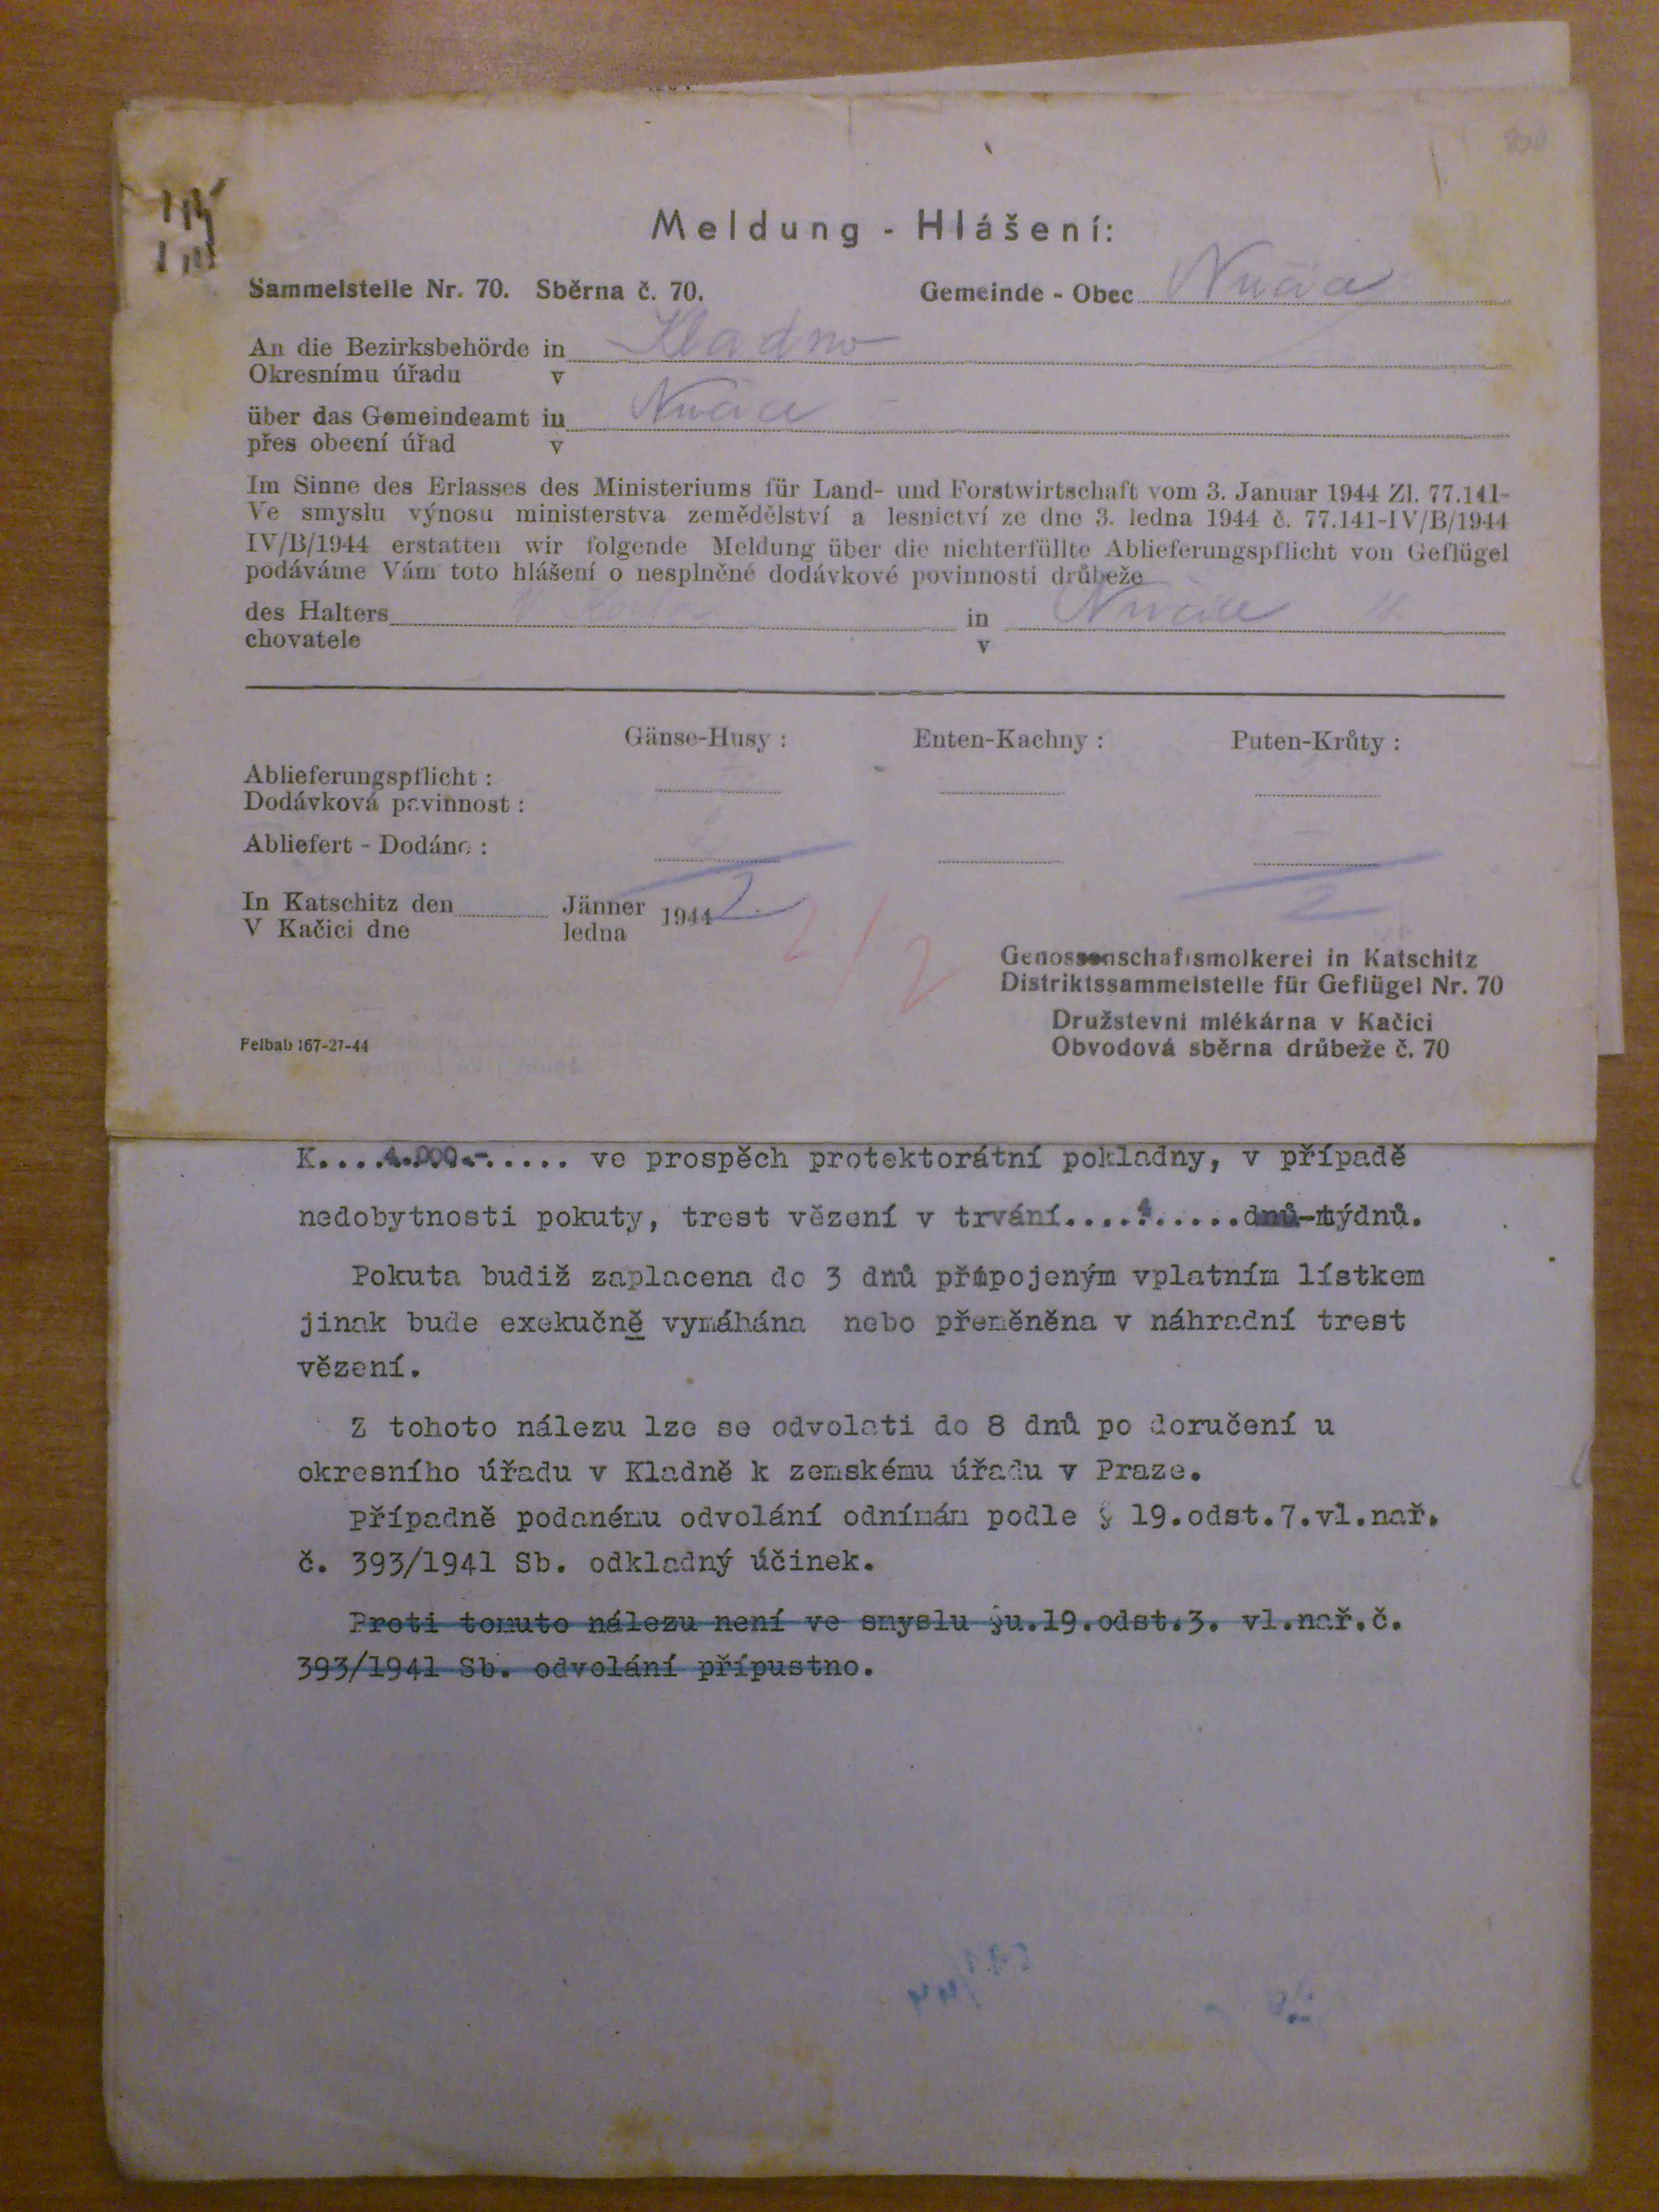 Meldung - Hlášení:
Sammelstelle Nr. 70. Sběrna č. 70. Gemeinde - Obec Nučice
An die Bezirksbehörde in Kladno
Okresnímu úřadu v
über das Gemeindeamt in Nučice
přes obecní úřad v
Im Sinne des Erlasses des Ministeriums für Land- und Forstwirtschaft vom 3. Januar 1944 Zl. 77.141-
Ve smyslu výnosu ministerstva zemědělství a lesnictví ze dne 3. ledna 1944 č. 77.141-IV/B/1944
IV/B/1944 erstatten wir folgende Meldung über die nichterfüllte Ablieferungspflicht von Geflügel
podáváme Vám toto hlášení o nesplněné dodávkové povinnosti drůbeže
des Halters in Nučice
chovatele v
Gänse-Husy : Enten-Kachny : Puten-Krůty :
Ablieferungspflicht :
Dodávková povinnost :
Abliefert - Dodáno :
In Katschitz den Jänner 1944 2.
V Kačici dne ledna
2/2
2
Genossenschaftsmolkerei in Katschitz
Distriktssammelstelle für Geflügel Nr. 70
Družstevni mlékárna v Kačici
Obvodová sběrna drůbeže č. 70
Felbab 167-27-44
K....4.000.-..... ve prospěch protektorátní pokladny, v případě
nedobytnosti pokuty, trest vězení v trvání....4.....dnů-týdnů.
Pokuta budiž zaplacena do 3 dnů připojeným vplatním lístkem
jinak bude exekučně vymáhána nebo přeměněna v náhradní trest
vězení.
Z tohoto nálezu lze se odvolati do 8 dnů po doručení u
okresního úřadu v Kladně k zemskému úřadu v Praze.
Případně podanému odvolání odnímám podle § 19.odst.7.vl.nař.
č. 393/1941 Sb. odkladný účinek.
Proti tomuto nálezu není ve smyslu §u.19.odst.3. vl.nař.č.
393/1941 Sb. odvolání přípustno.